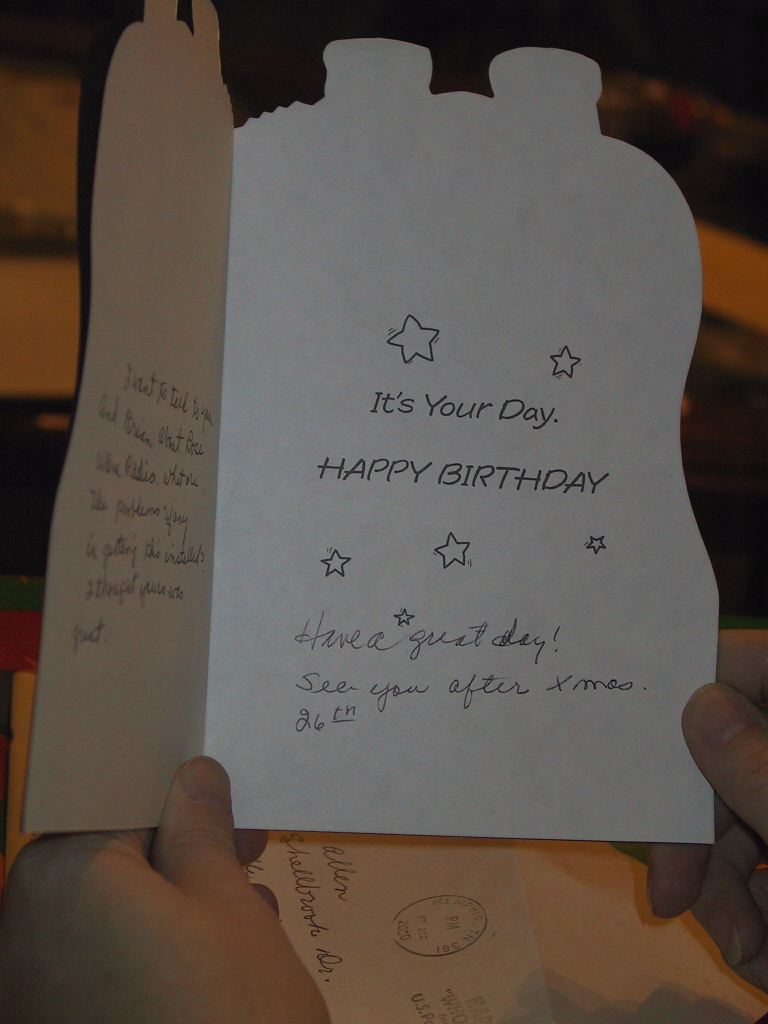 I want to talk to you
and Brian about Bose
Wave Radios. what are
the problems if any
in getting this installed?
I thought yours was
great.
It's Your Day.
HAPPY BIRTHDAY
Have a great day!
See you after Xmas.
26th
Allen
Shellbrook Dr.
MEMPHIS, TN 381
PM
DEC
2000
"WHO
U.S.PO